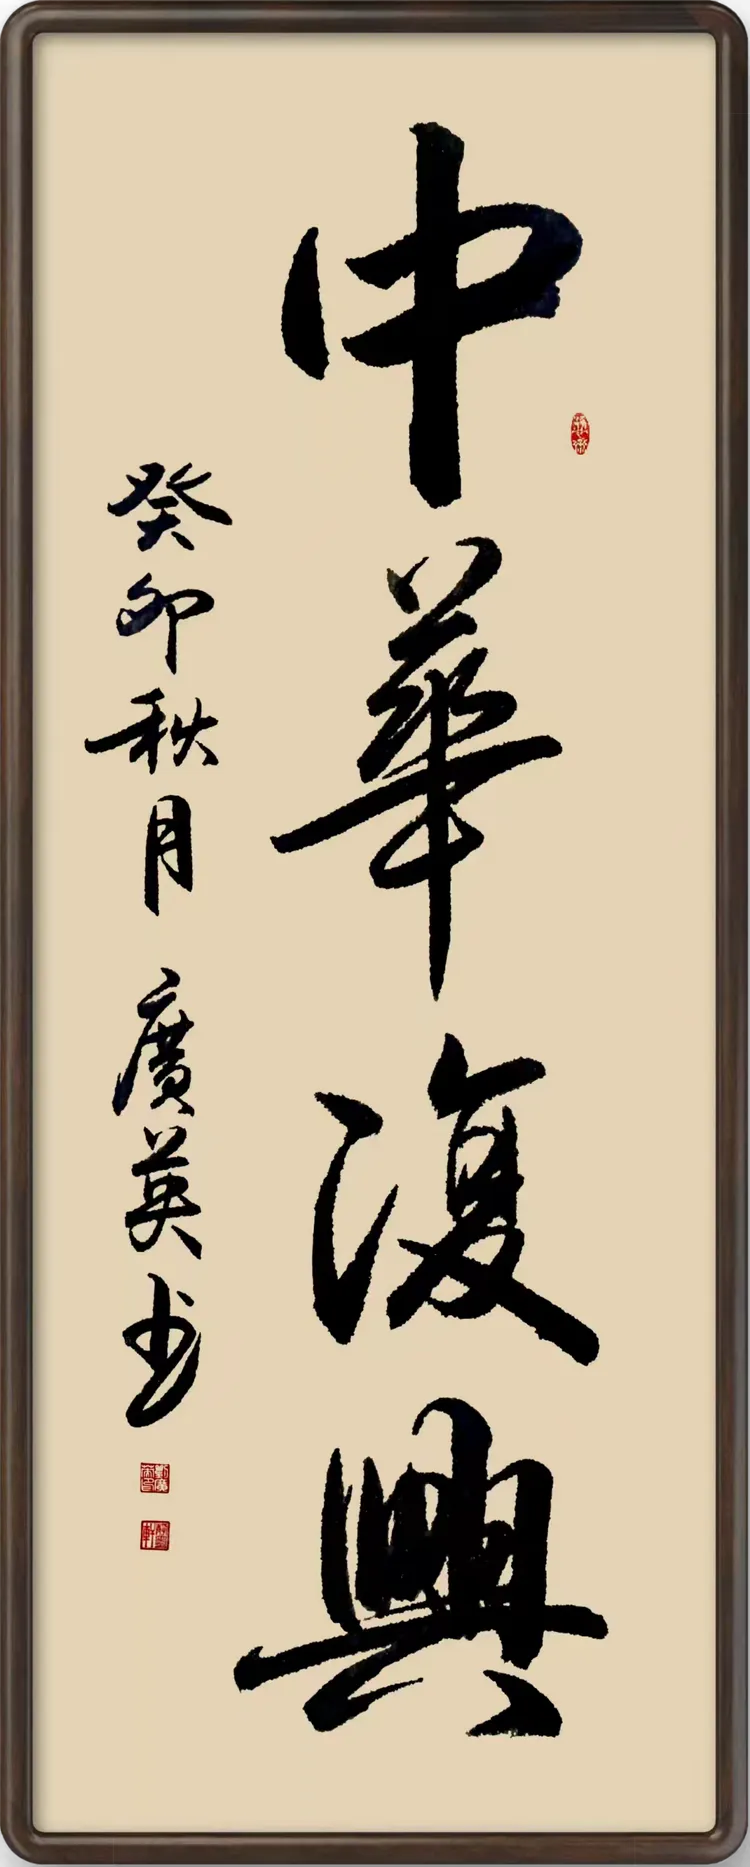 中華復興
癸卯秋月 廣英书